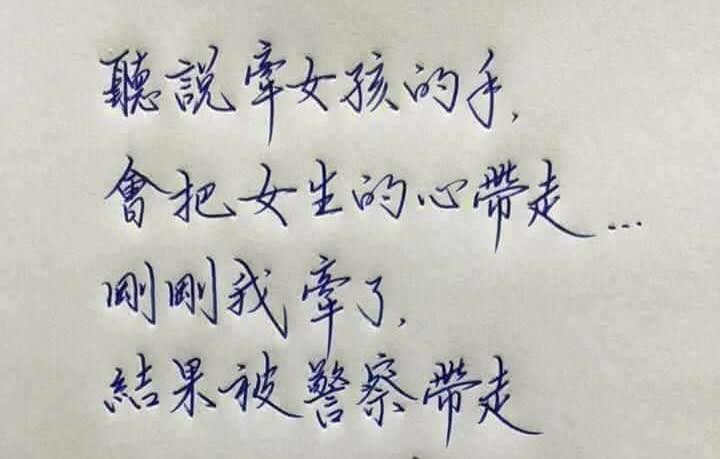 聽說牽女孩的手,
會把女生的心帶走...
剛剛我牽了,
結果被警察帶走